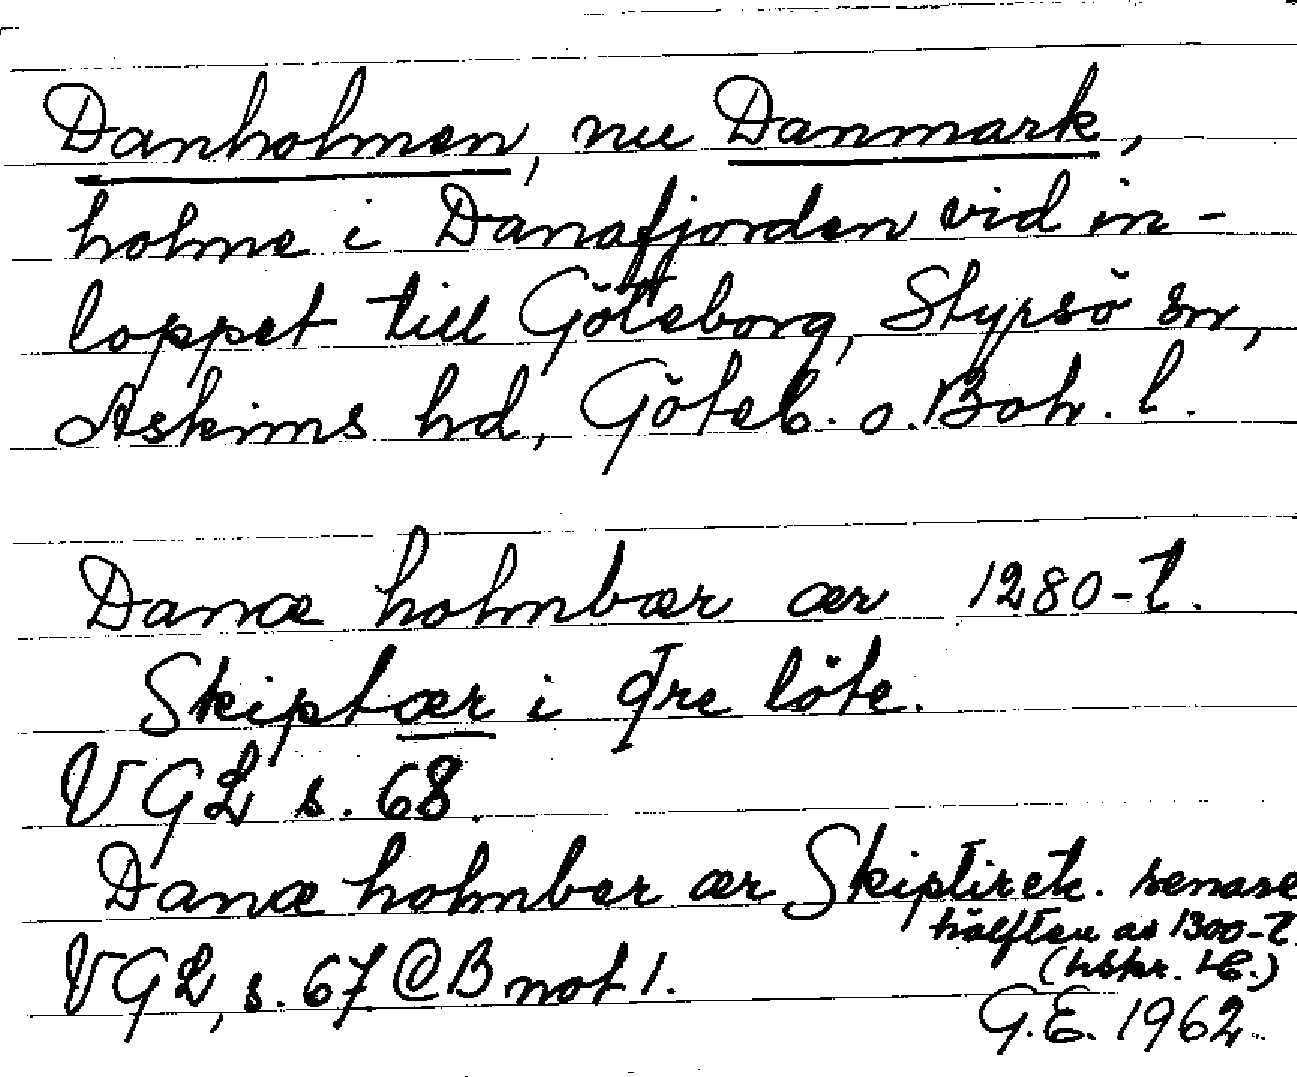 Danholmen, nu Danmark,
holme i Danafjorden vid in-
loppet till Göteborg, Styrsö sn,
Askims hd, Göteb. o. Boh. l.
Danæ holmbær ær 1280-t.
Skiptær i þre löte.
VGL s. 68.
Danæ holmber ær Skiptirek. senare
hälften av 1300-t.
VGL, s. 67 @ B not 1. (hskr. HC.)
G.E. 1962.